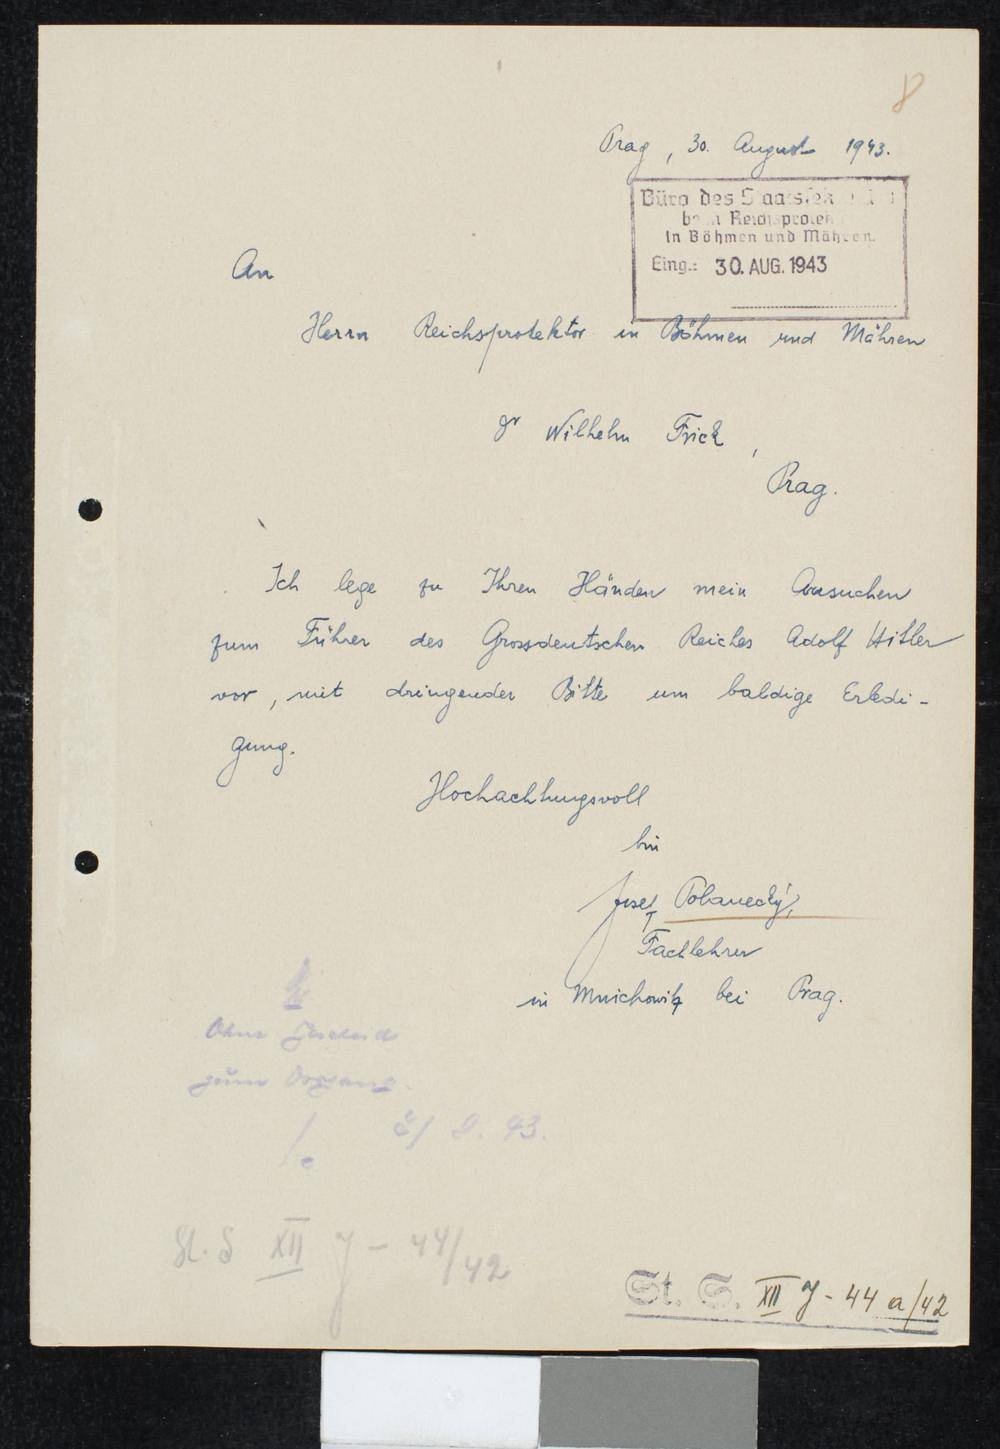 8
Prag, 30. August 1943.
Büro des Staatssek
beim Reichsprotek
in Böhmen und Mähren.
Eing.: 30. AUG. 1943
An
Herrn Reichsprotektor in Böhmen und Mähren
Dr Wilhelm Frick,
Prag.
Ich lege zu Ihren Händen mein Ansuchen
zum Führer des Grossdeutschen Reiches Adolf Hitler
vor, mit dringender Bitte um baldige Erledi-
gung.
Hochachtungsvoll
bin
Josef
Fachlehrer
in Mnichowitz bei Prag.
Ohne
zum
9. 43.
St. S XII J - 44/42
St. S. XII J - 44 a/42